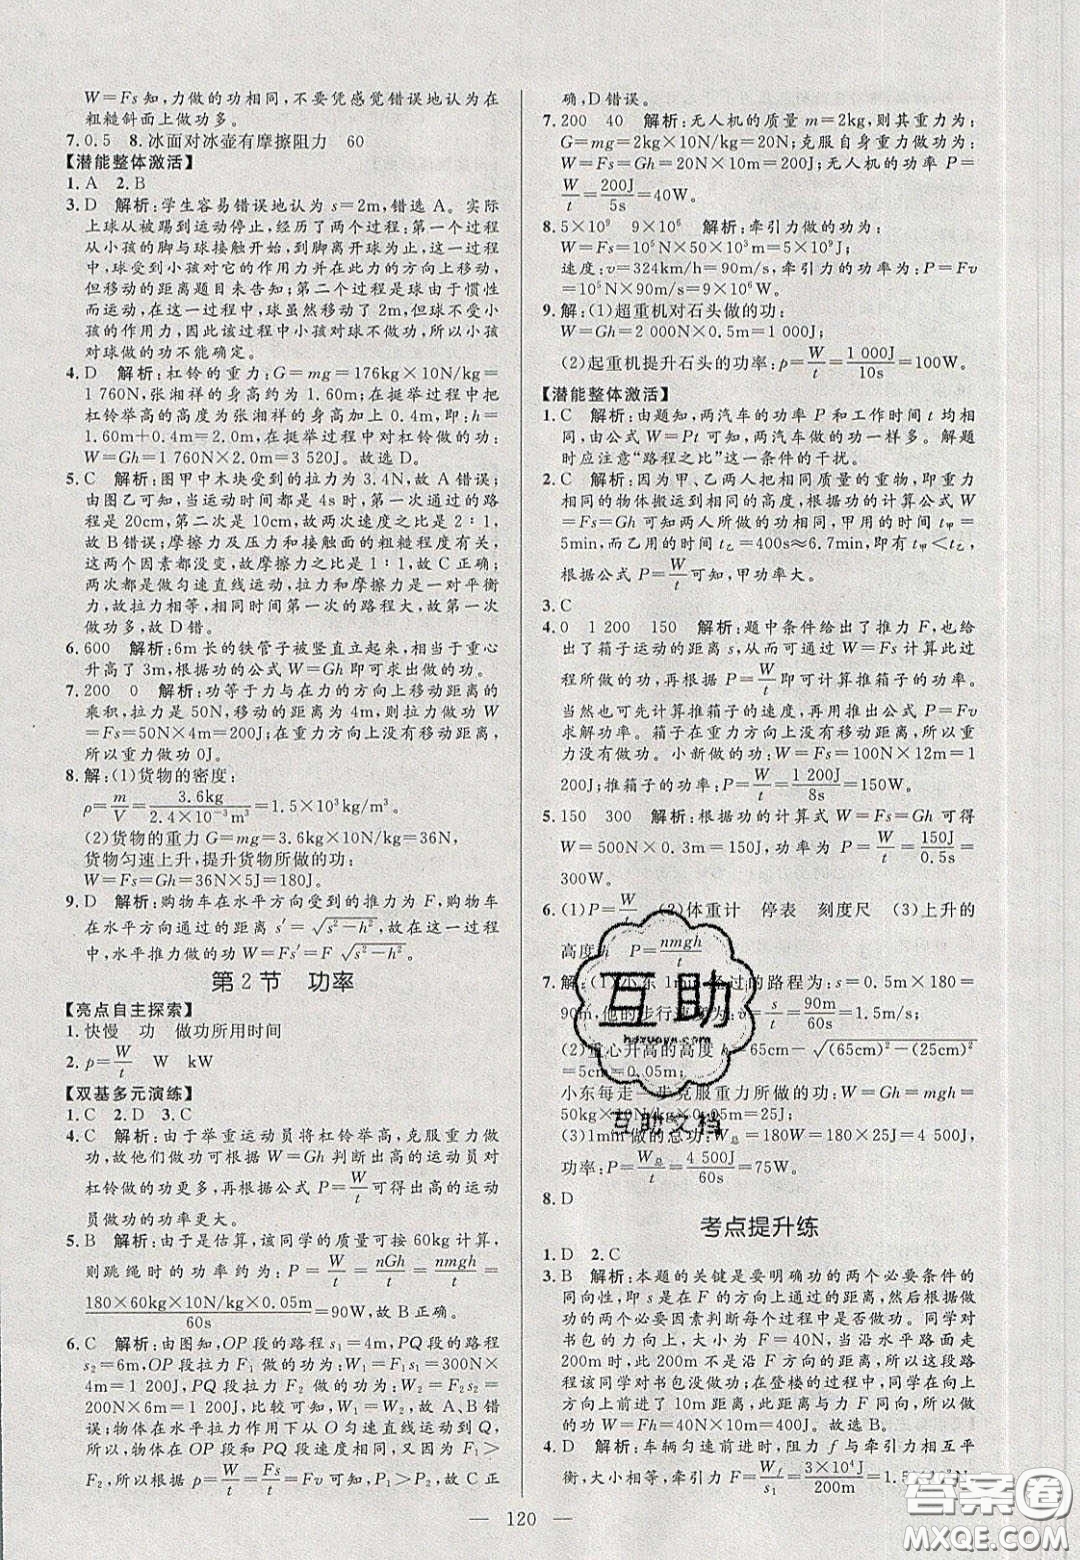 W=Fs知,力做的功相同,不要凭感觉错误地认为在
粗糙斜面上做功多。
7.0.5 8.冰面对冰壶有摩擦阻力 60
【潜能整体激活】
1.A 2.B
3.D 解析:学生容易错误地认为s=2m,错选A。实际
上球从被踢到运动停止,经历了两个过程:第一个过程
从小孩的脚与球接触开始,到脚离开球为止,在这一过程
中,球受到小孩对它的作用力并在此力的方向上移动,
但移动的距离题目未告知;第二个过程是球由于惯性
而运动,这一过程中,球虽然移动了2m,但球不受小
孩的作用力,因此该过程中小孩对球不做功,所以小孩
对球做的功不能确定。
4.D 解析:杠铃的重力:G=mg=176kg×10N/kg=
1 760N,张湘祥的身高约为1.60m;在挺举过程中把
杠铃举高的高度为张湘祥的身高加上0.4m,即:h=
1.60m+0.4m=2.0m;在挺举过程中对杠铃做的功:
W=Gh=1 760N×2.0m=3 520J。故选D。
5.C 解析:图甲中木块受到的拉力为3.4N,故A错误;
由图乙可知,当运动时间都是4s时,第一次通过的路
程是20cm,第二次是10cm,故两次速度之比是2∶1,
故B错误;摩擦力及压力和接触面的粗糙程度有关,
这两个因素都没变,故摩擦力之比是1∶1,故C正确;
两次都是做匀速直线运动,拉力和摩擦力是一对平衡
力,故拉力相等,相同时间第一次的路程大,故第一次
做功多,故D错。
6.600 解析:6m长的铁管子被竖直立起来,相当于重心
升高了3m,根据功的公式W=Gh即可求出做的功。
7.200 0 解析:功等于力与在力的方向上移动距离的
乘积,拉力是50N,移动的距离为4m,则拉力做功W
=Fs=50N×4m=200J;在重力方向上没有移动距离,
所以重力做功0J。
8.解:(1)货物的密度:
ρ=m/V=3.6kg/2.4×10⁻³m³=1.5×10³kg/m³。
(2)货物的重力G=mg=3.6kg×10N/kg=36N,
货物匀速上升,提升货物所做的功:
W=Fs=Gh=36N×5J=180J。
9.D 解析:购物车在水平方向受到的推力为F,购物车
在水平方向移动的距离s′=√(s²−h²),故在这一过程
中,水平推力做的功W=Fs′=F√(s²−h²)。
第2节 功率
【亮点自主探索】
1.快慢 功 做功所用时间
2.p=W/t W kW
【双基多元演练】
1.C 2.D 3.C
4.C 解析:由于举重运动员将杠铃举高,克服重力做
功,所以他做功可根据W=Gh判断出高的运动员对
杠铃做的功更多,再根据公式P=W/t可得出高的运动
员做功的功率更大。
5.B 解析:由于是估算,该同学的质量可按60kg计算,
则跳绳时的功率约为:P=W/t=nGh/t=nmgh/t=
180×60kg×10N/kg×0.05m/60s=90W,故B正确。
6.C 解析:由图知,OP段的路程s₁=4m,PQ段的路程
s₂=6m,OP段拉力F₁做的功为:W₁=F₁s₁=300N×
4m=1 200J,PQ段拉力F₂做的功为:W₂=F₂s₂=
200N×6m=1 200J,可知,W₁=W₂,故A、B错
误;物体在水平拉力作用下从O匀速直线运动到Q,
所以,物体在OP段和PQ段速度相同,又因为F₁>
F₂,据p=W/t=Fs/t=Fv可知,P₁>P₂,故C正
确,D错误。
7.200 40 解析:无人机的质量m=2kg,则其重力为:
G=mg=2kg×10N/kg=20N;克服自身重力做功为:
W=Fs=Gh=20N×10m=200J;无人机的功率P=
W/t=200J/5s=40W。
8.5×10⁹ 9×10⁶ 解析:牵引力做的功为:
W=Fs=10⁵N×50×10³m=5×10⁹J;
速度:v=324km/h=90m/s,牵引力的功率为:P=Fv
=10⁵N×90m/s=9×10⁶W。
9.解:(1)超重机对石头做的功:
W=Gh=2 000N×0.5m=1 000J;
(2)起重机提升石头的功率:p=W/t=1 000J/10s=100W。
【潜能整体激活】
1.C 解析:由题知,两汽车的功率P和工作时间t均相
同,由公式W=Pt可知,两汽车做的功一样多。解题
时应注意“路程之比”这一条件的干扰。
2.C 解析:因甲、乙两人把相同质量的重物,即重力
相同的物体搬运到相同的高度,根据功的计算公式W
=Fs=Gh可知两人所做的功相同,甲用的时间t甲=
5min,而乙用的时间t乙=400s≈6.7min,即有t甲<t乙,
根据公式P=W/t可知,甲功率大。
3.C
4.0 1 200 150 解析:题中条件给出了推力F,也给
出了箱子运动的距离s,从而可通过W=Fs计算此过
程所做的功,再根据P=W/t即可计算推箱子的功率。
当然也可先计算推箱子的速度,再用推出公式P=Fv
求解功率。箱子在重力方向上没有移动距离,所以重力
没有做功。小新做的功:W=Fs=100N×12m=1
200J;推箱子的功率:P=W/t=1 200J/8s=150W。
5.150 300 解析:根据功的计算式W=Fs=Gh可得
W=500N×0.3m=150J,功率为P=W/t=150J/0.5s=
300W。
6.(1)P=W/t (2)体重计 停表 刻度尺 (3)上升的
高度h P=nmgh/t
7.解:(1)小东1min经过的路程为:s=0.5m×180=
90m,他的步行速度为:v=s/t=90m/60s=1.5m/s;
(2)重心升高的高度h=65cm−√((65cm)²−(25cm)²)
=5cm=0.05m;
小东每走一步克服重力所做的功:W=Gh=mgh=
50kg×10N/kg×0.05m=25J;
(3)1min做的总功:W总=180W=180×25J=4 500J,
功率:P=W总/t=4 500J/60s=75W。
8.D
考点提升练
1.D 2.C
3.B 解析:本题的关键是要明确功的两个必要条件的
同向性,即s是在F的方向上移动的距离,然后根据做
功的两个必要因素判断每个过程中的做功。某同学对
书包的力向上,大小为F=40N,当沿水平路面走
200m时,此200m不是沿F方向的距离,所以这段路
程该同学对书包没做功;在登楼的过程中,同学在竖直
方向上上升了10m距离,此距离与力F同向,所以做
的功W=Fh=40N×10m=400J。故选B。
4.D 解析:车辆匀速前进时,阻力f与牵引力相互平
衡,大小相等,牵引力F=Wf/s₁=3×10⁴J/200m=1.5×10²N
120
互助
hdzuoye.com
互助文档
答案圈
MXQE.COM